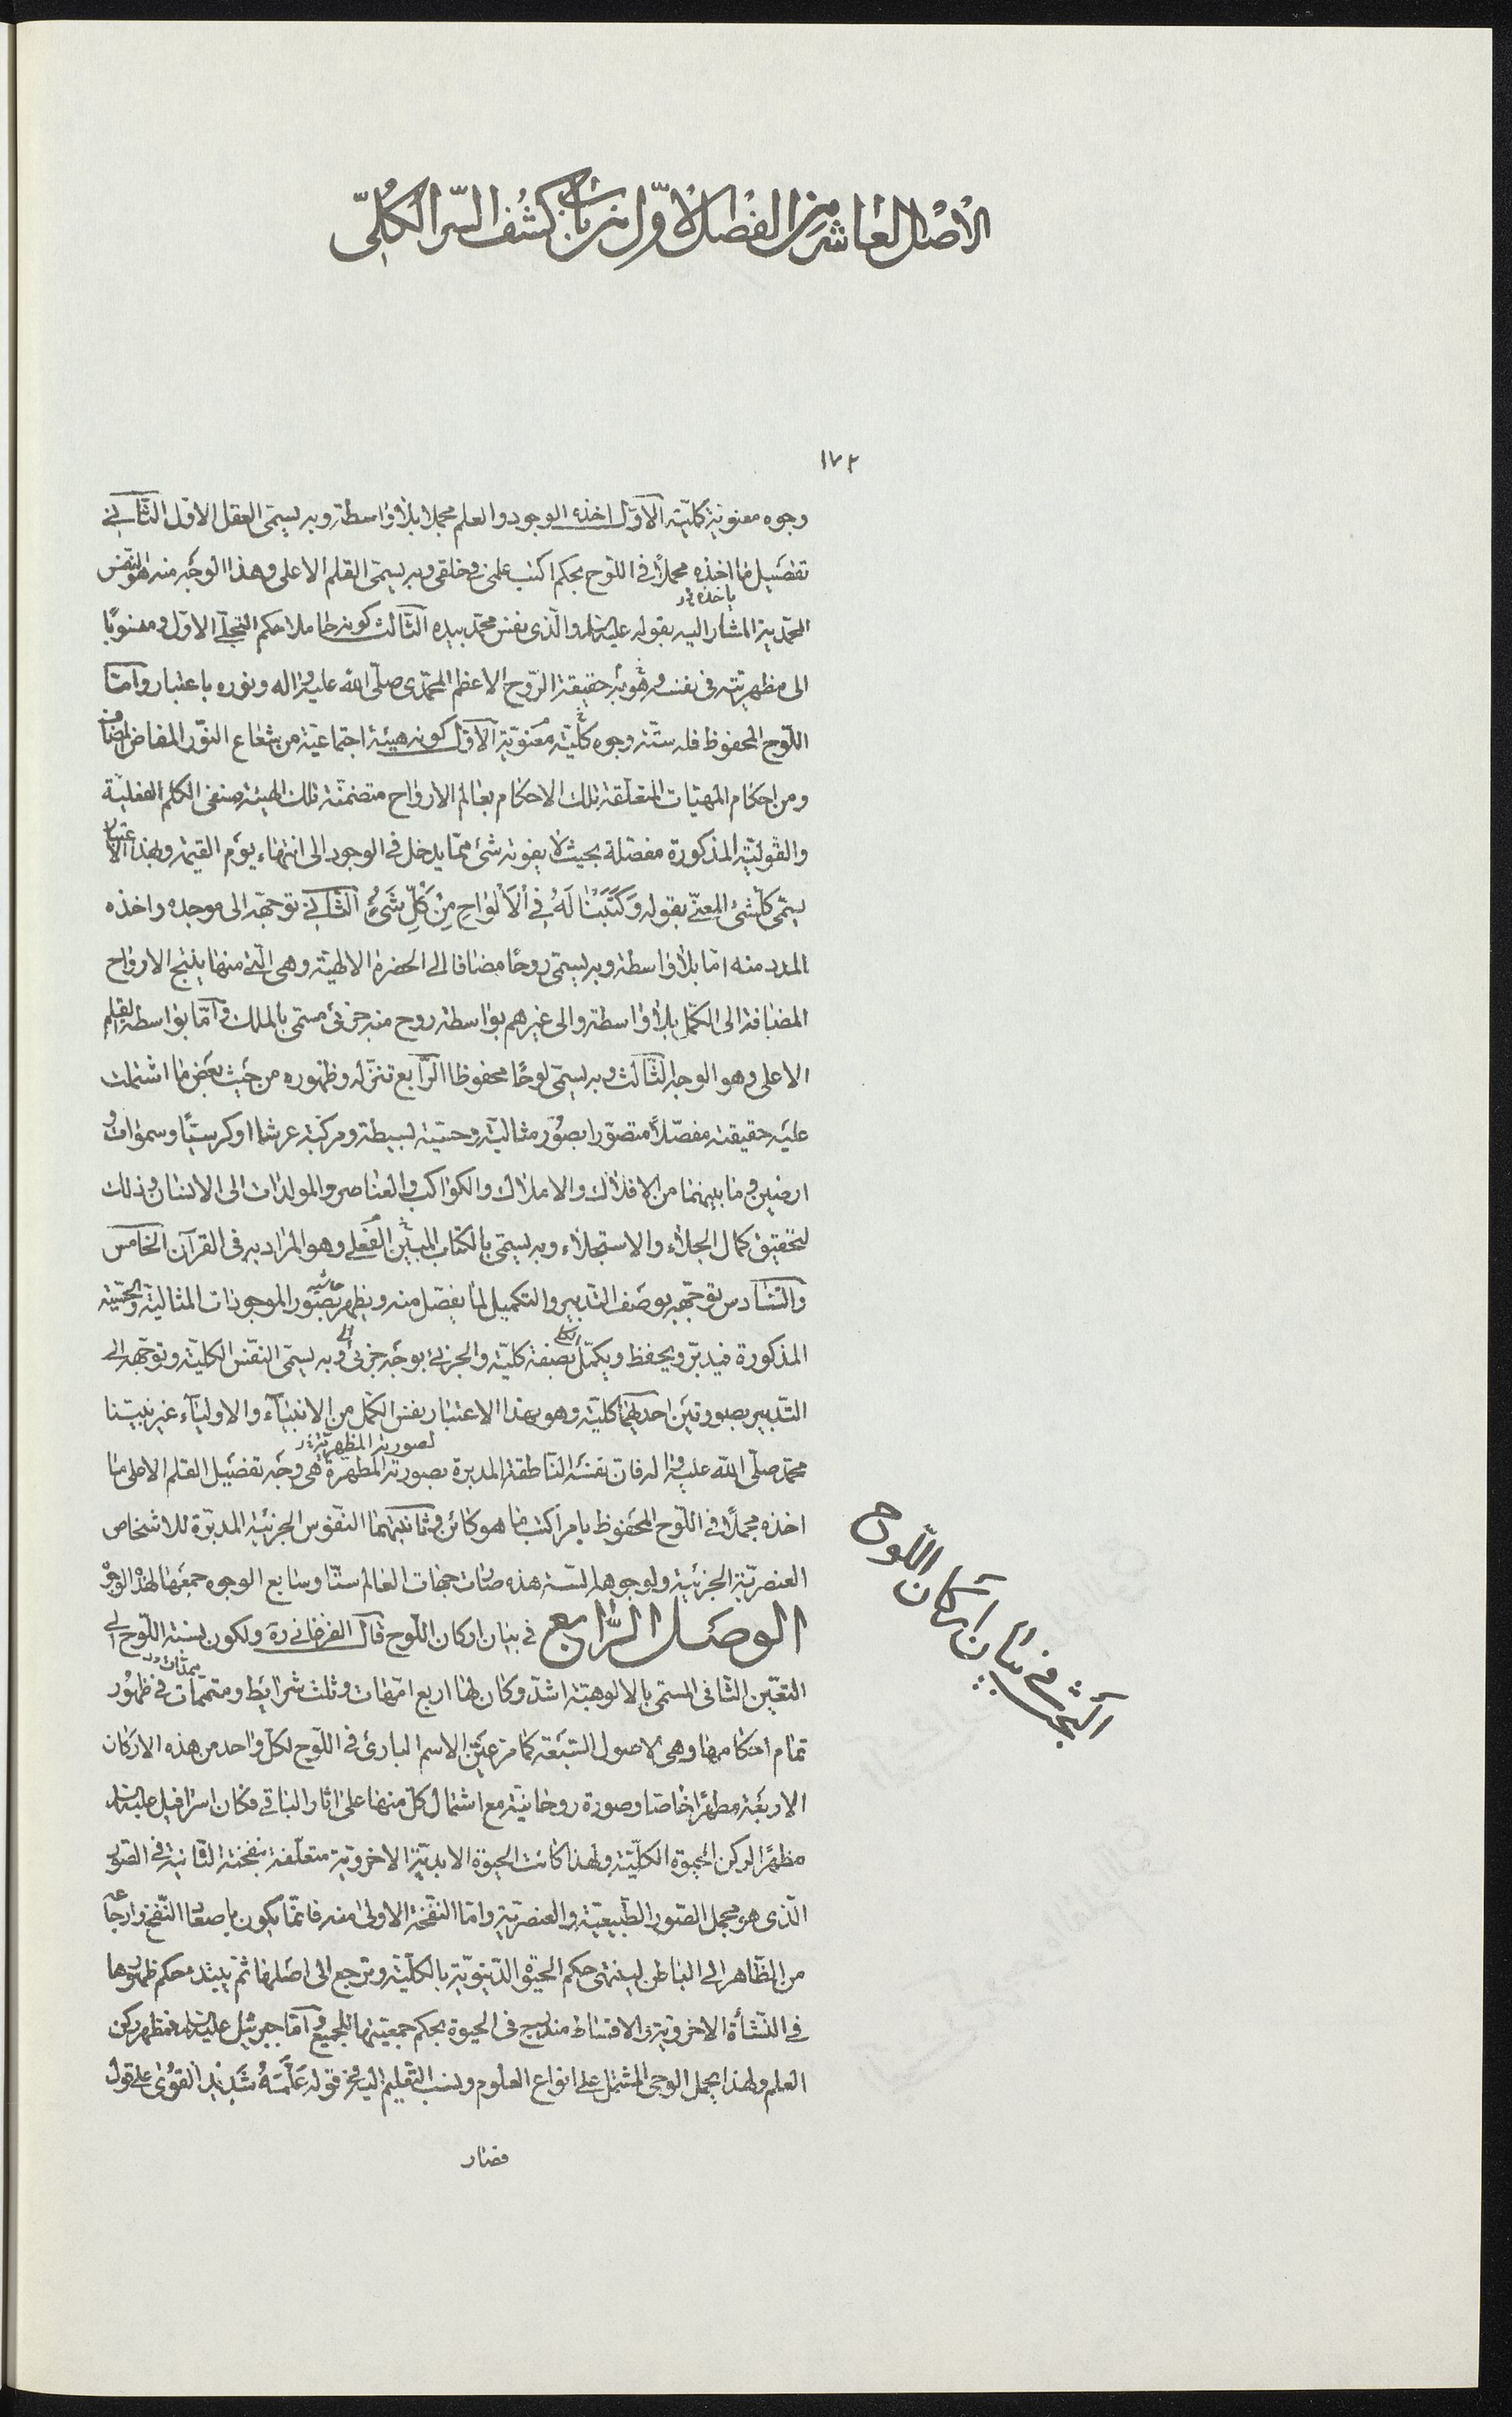 الاصل العاشر من الفصل الاول من باب كشف السر الكلي
١٧٢
وجوه معنوية كلية الاول اخذه الوجود والعلم مجملا بلا واسطة وبه يسمى العقل الاول الثاني
تفصيل ما اخذه مجملا في اللوح بحكم اكتب علمي في خلقي وبه يسمى القلم الاعلى وهذا الوجه منه هو النفس
ياخذه خ ر
المحمدية المشار اليه بقوله عليه السلام والذي نفس محمد بيده الثالث كونه حاملا حكم التجلي الاول ومنسوبا
الى مظهريته في نفسه وهو به حقيقة الروح الاعظم المحمدي صلى الله عليه واله ونوره باعتبار واما
اللوح المحفوظ فله ستة وجوه كلية معنوية الاول كونه هيئة اجتماعية من شعاع النور المفاض المضاف
ومن احكام المهيات المتعلقة تلك الاحكام بعالم الارواح متضمنة تلك الهيئة صنفي الكلم الفعلية
والقولية المذكورة مفصلة بحيث لا يفوته شئ مما يدخل في الوجود الى انتهاء يوم القيمة وبهذا الاعتبار
يسمى كلشئ المعني بقوله وَكَتَبْنَا لَهُ فِي اْلاَلْوَاحِ مِنْ كُلِّ شَيْءٍ الثاني توجهه الى موجده واخذه
المدد منه اما بلا واسطة وبه يسمى روحا مضافا الى الحضرة الالهية وهي التي منها ينتج الارواح
المضافة الى الكمل بلا واسطة والى غيرهم بواسطة روح منه جزئي مسمى بالملك واما بواسطة القلم
الاعلى وهو الوجه الثالث وبه يسمى لوحا محفوظا الرابع تنزله وظهوره من حيث بعض ما اشتملت
عليه حقيقته مفصلا متصورا بصور مثالية وحسية بسيطة ومركبة عرشا او كرسيا وسموات و
ارضين وما بينهما من الافلاك والاملاك والكواكب والعناصر والمولدات الى الانسان وذلك
لتحقيق كمال الجلاء والاستجلاء وبه يسمى بالكتاب المبين الفعلي وهو المراد به في القرآن الخامس
والسادس توجهه بوصف التدبير والتكميل لما يفصل منه ويظهر بصور الموجودات المثالية والحسية
المذكورة فيدبر ويحفظ ويكمل بصفة كلية والجزئي بوجه جزئي وبه يسمى النفس الكلية وتوجهه الى
التدبير بصورتين احديهما كلية وهو بهذا الاعتبار نفس الكمل من الانبياء والاولياء غير نبينا
لصورته المظهرية خ ر
محمد صلى الله عليه واله فان نفسه الناطقة المدبرة بصورته المطهرة هي وجه تفصيل القلم الاعلى ما
اخذه مجملا في اللوح المحفوظ بامر اكتب ما هو كائن وثانيتهما النفوس الجزئية المدبرة للاشخاص
العنصرية الجزئية ولوجوهها الستة هذه صارت جهات العالم ستا وسابع الوجوه جمعها لهذه الوجوه
الوصل الرابع في بيان اركان اللوح قال الفرغاني ره ولكون نسبة اللوح الى
ممدات خ ر
التعين الثاني المسمى بالالوهية اشد وكان لها اربع امهات وثلث شرائط ومتممات في ظهور
تمام احكامها وهي الاصول السبعة كما مر عين الاسم البارئ في اللوح لكل واحد من هذه الاركان
الاربعة مظهرا خاصا وصورة روحانية مع اشتمال كل منها على اثار الباقي فكان اسرافيل عليه السلام
مظهرا لركن الحيوة الكلية ولهذا كانت الحيوة الابدية الاخروية متعلقة بنفخته الثانية في الصور
الذي هو مجمل الصور الطبيعية والعنصرية واما النفخة الاولى منه فانما يكون باصعاد النفخ وارجاعه
من الظاهر الى الباطن لينتهى حكم الحيوة الدنيوية بالكلية وترجع الى اصلها ثم يبتدء حكم ظهورها
في النشأة الاخروية والاقساط مندرج في الحيوة بحكم جمعيتها للجميع واما جبرئيل عليه السلام فمظهر ركن
العلم ولهذا يحمل الوحي المشتمل على انواع العلوم ونسب التعليم اليه في قوله عَلَّمَهُ شَدِيدُ القُوٰى على قول
فصار
البحث في بيان اركان اللوح